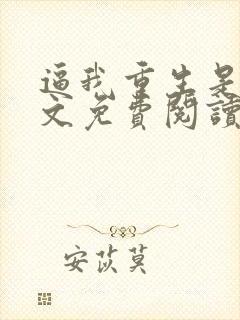 逼我重生是
文免費閱讀
安苡莫